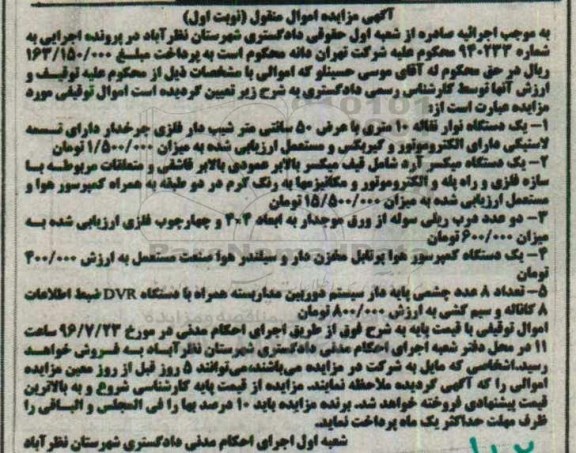 آگهی مزایده اموال منقول (نوبت اول)
به موجب اجرائیه صادره از شعبه اول حقوقی دادگستری شهرستان نظرآباد در پرونده اجرایی به
شماره ۹۴۰۲۳۳ محکوم علیه شرکت تهران دانه محکوم است به پرداخت مبلغ ۱۶۳/۱۵۰/۰۰۰
ریال در حق محکوم له آقای موسی حسینلو که اموالی با مشخصات ذیل از محکوم علیه توقیف و
ارزش آنها توسط کارشناس رسمی دادگستری به شرح زیر تعیین گردیده است اموال توقیفی مورد
مزایده عبارت است از:
۱- یک دستگاه نوار نقاله ۱۰ متری با عرض ۵۰ سانتی متر شیب دار فلزی چرخدار دارای تسمه
لاستیکی دارای الکتروموتور و گیربکس و مستعمل ارزیابی شده به میزان ۱/۵۰۰/۰۰۰ تومان
۲- یک دستگاه میکسر آرد شامل قیف میکسر بالابر عمودی بالابر قاشقی و متعلقات مربوطه با
سازه فلزی و راه پله و الکتروموتور و مکانیزمها به رنگ کرم در دو طبقه به همراه کمپرسور هوا و
مستعمل ارزیابی شده به میزان ۱۵/۵۰۰/۰۰۰ تومان
۳- دو عدد درب ریلی سوله از ورق موجدار به ابعاد ۴۰۴ و چهارچوب فلزی ارزیابی شده به
میزان ۶۰۰/۰۰۰ تومان
۴- یک دستگاه کمپرسور هوا پرتابل مخزن دار و سیلندر هوا صنعت مستعمل به ارزش ۴۰۰/۰۰۰
تومان
۵- تعداد ۸ عدد چشمی پایه دار سیستم دوربین مداربسته همراه با دستگاه DVR ضبط اطلاعات
۸ کاناله و سیم کشی به ارزش ۸۰۰/۰۰۰ تومان
اموال توقیفی با قیمت پایه به شرح فوق از طریق اجرای احکام مدنی در مورخ ۹۶/۷/۲۳ ساعت
۱۱ در محل دفتر شعبه اجرای احکام مدنی دادگستری شهرستان نظرآباد به فروش خواهد
رسید.اشخاصی که مایل به شرکت در مزایده می‌باشند،می‌توانند ۵ روز قبل از روز معین مزایده
اموالی را که آگهی گردیده ملاحظه نمایند. مزایده از قیمت پایه کارشناسی شروع و به بالاترین
قیمت پیشنهادی فروخته خواهد شد. برنده مزایده باید ۱۰ درصد بها را فی المجلس و الباقی را
ظرف مهلت حداکثر یک ماه پرداخت نماید.
شعبه اول اجرای احکام مدنی دادگستری شهرستان نظرآباد